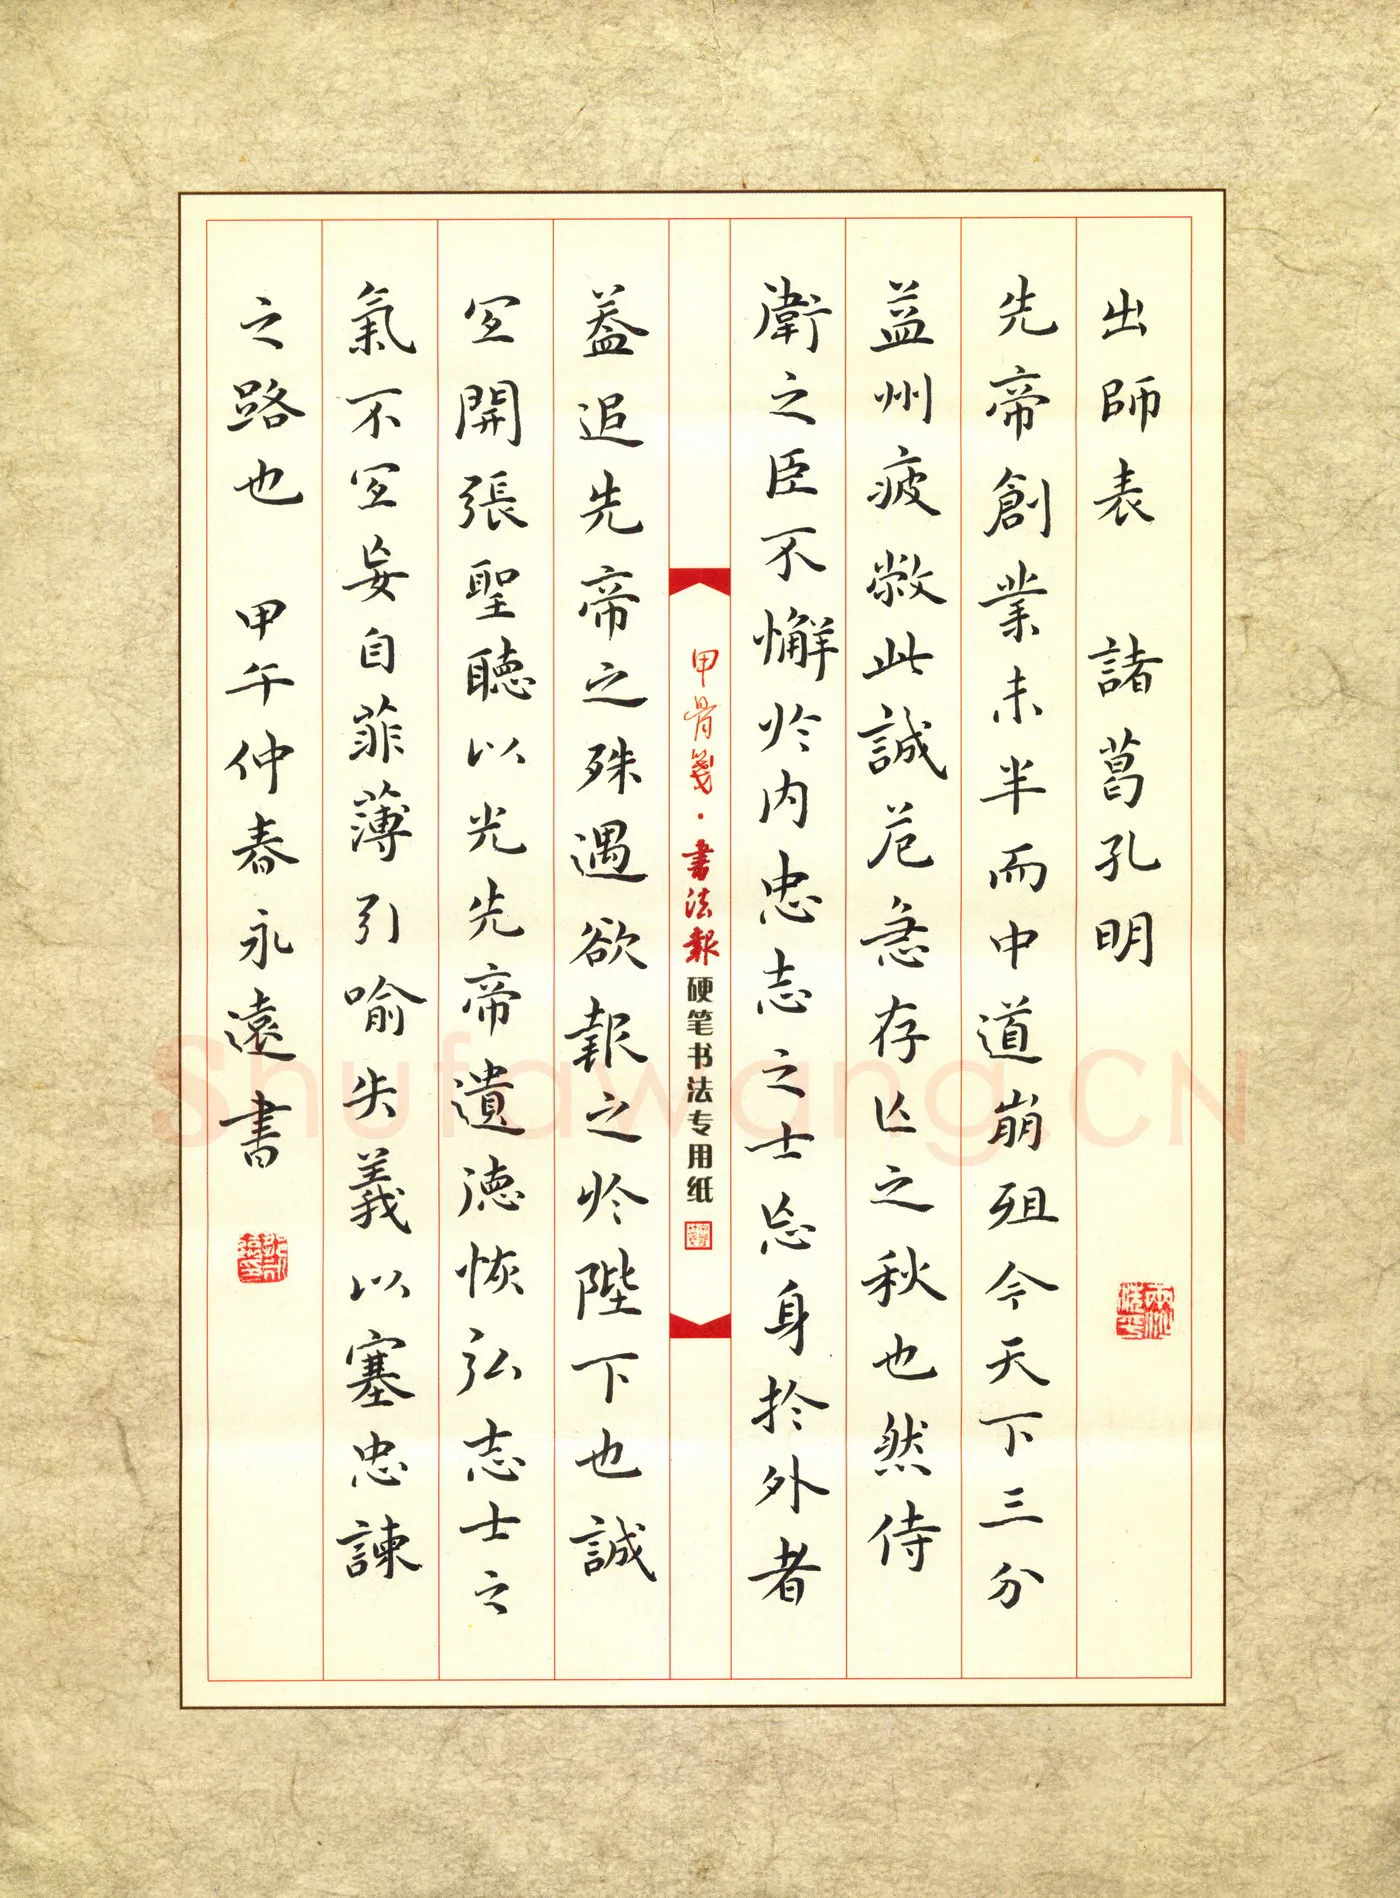 出師表 諸葛孔明
先帝創業未半而中道崩殂今天下三分
益州疲敝此誠危急存亡之秋也然侍
衛之臣不懈於內忠志之士忘身於外者
甲骨箋·書法報硬笔书法专用纸
蓋追先帝之殊遇欲報之於陛下也誠
宜開張聖聽以光先帝遺德恢弘志士之
氣不宜妄自菲薄引喻失義以塞忠諫
之路也 甲午仲春永遠書
Shufawang.CN